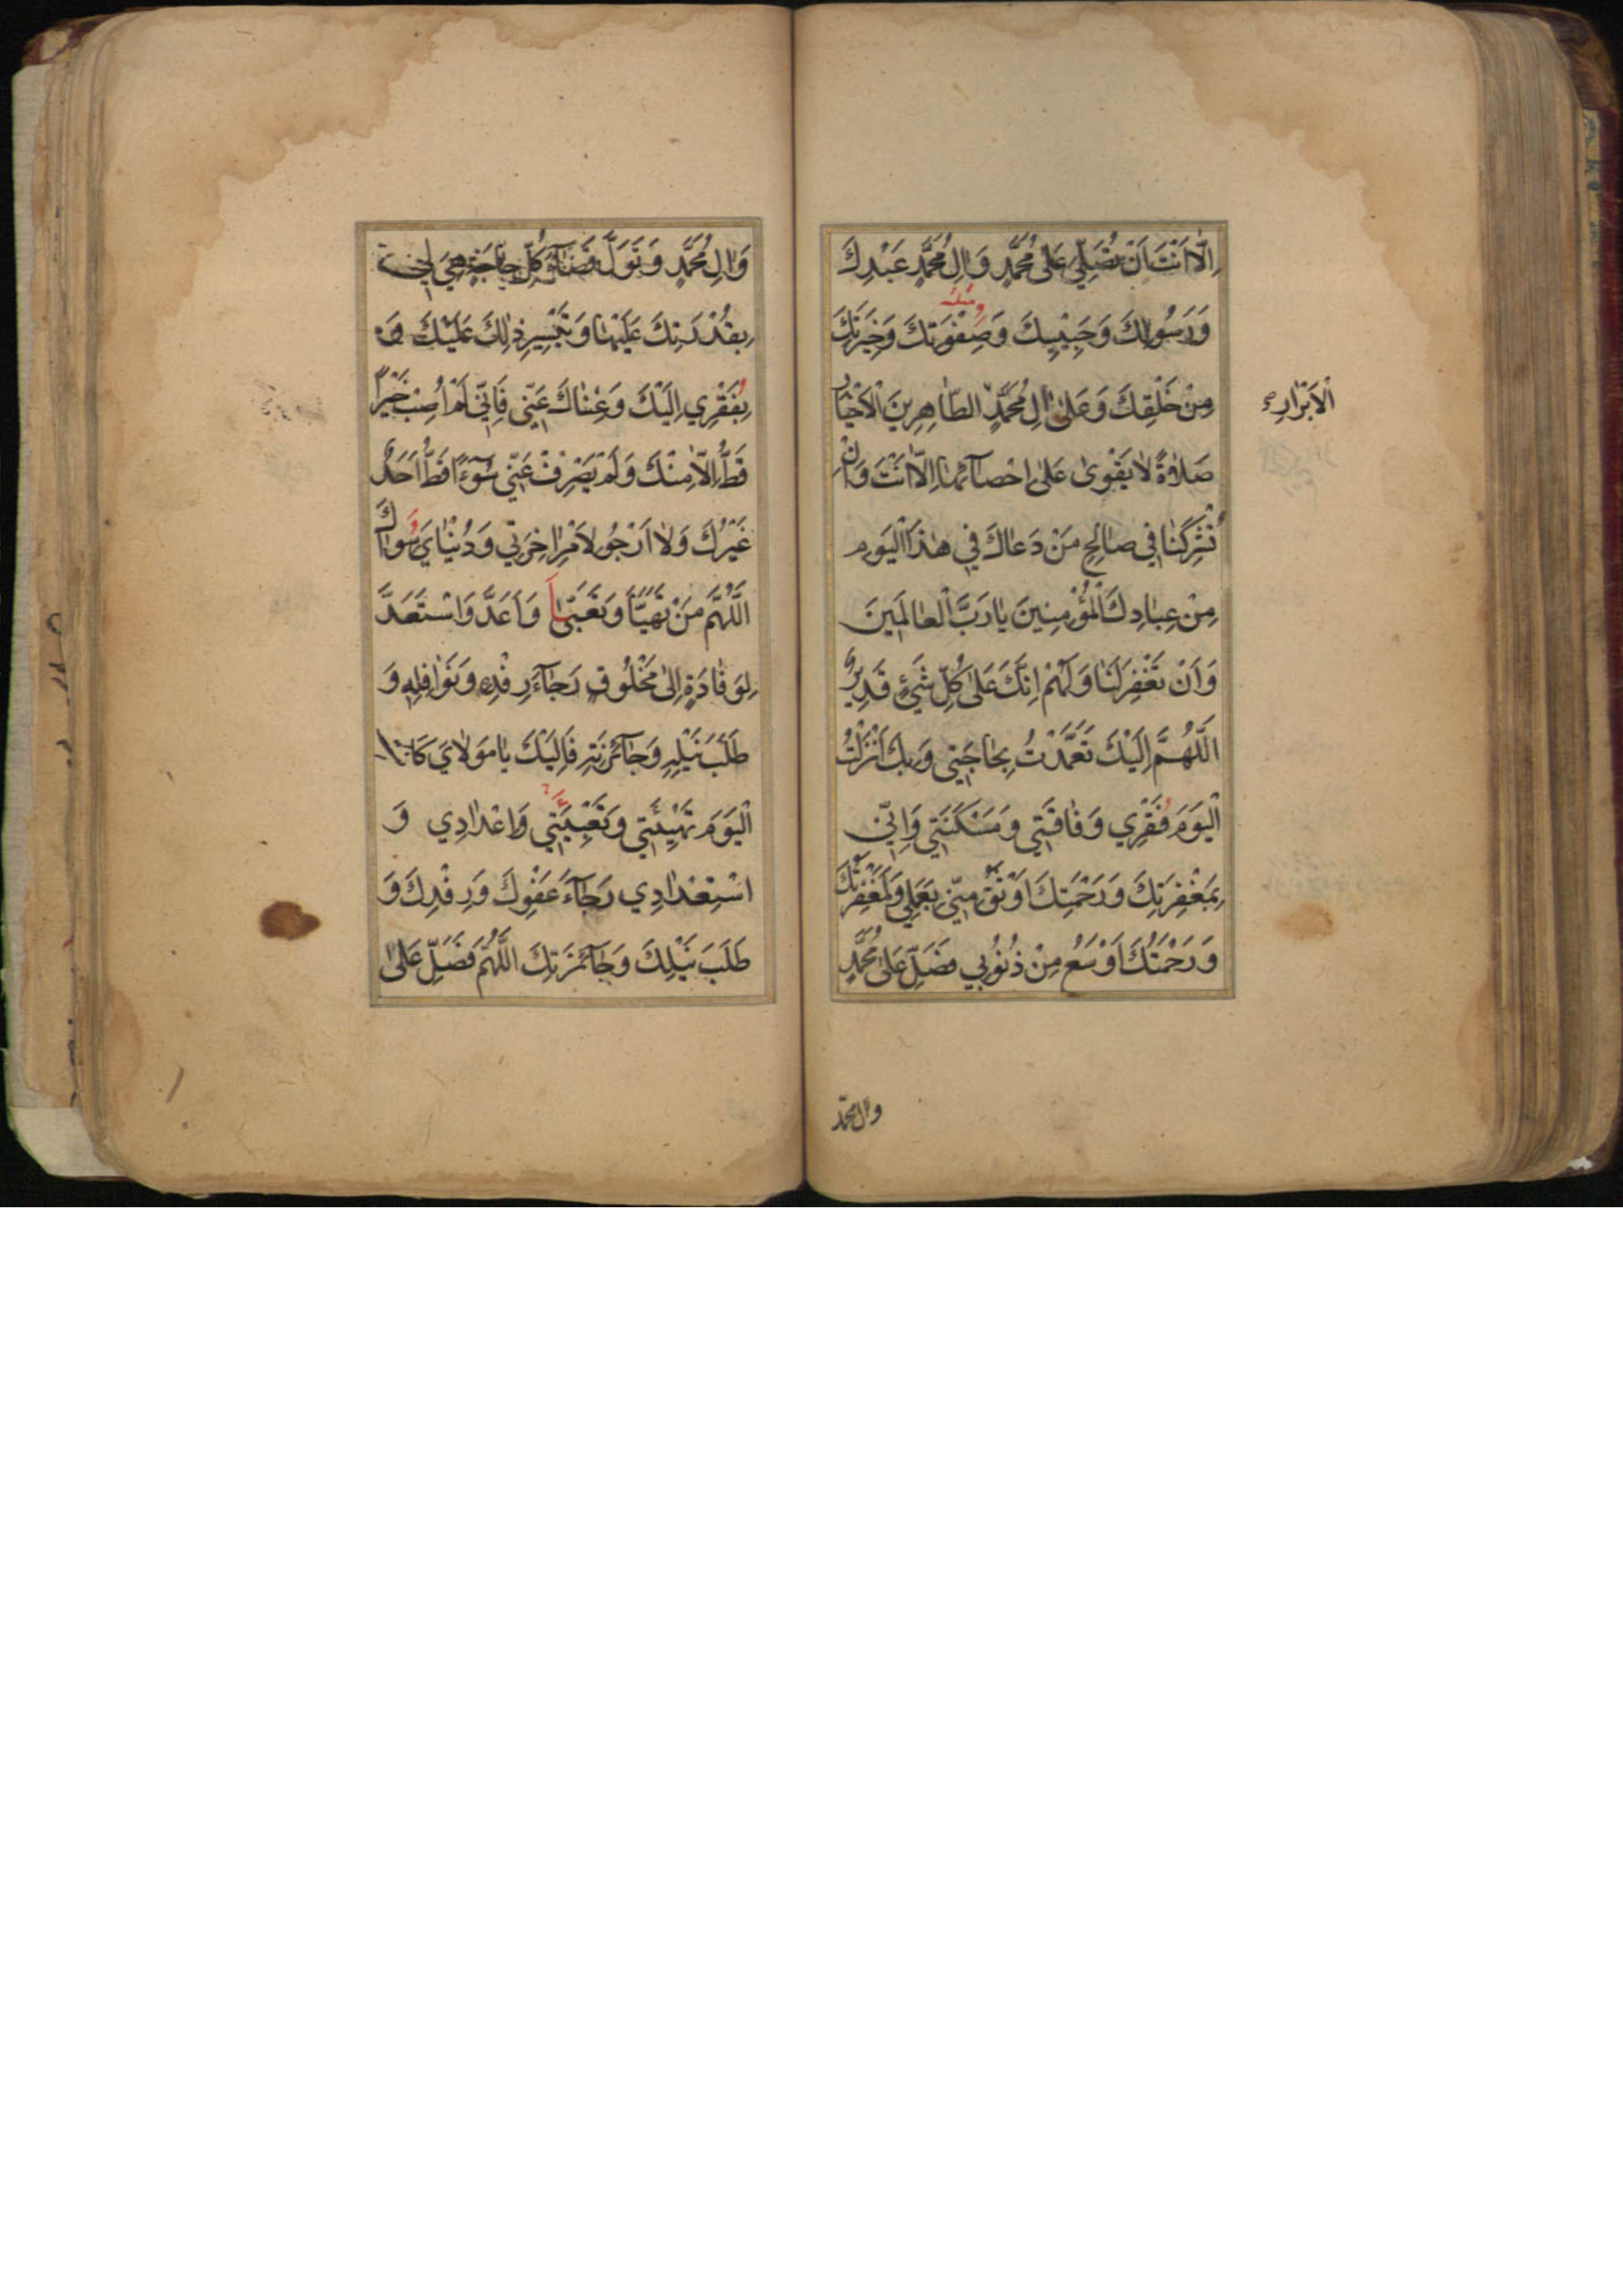 اِلّا اَنْتَ اَنْ تُصَلِّيَ عَلىٰ مُحَمَّدٍ وَاٰلِ مُحَمَّدٍ عَبْدِكَ
وَرَسُولِكَ وَحَبِيْبِكَ وَصِفْوَتِكَ وَخِيَرَتِكَ
مِنْ خَلْقِكَ وَعَلىٰ اٰلِ مُحَمَّدٍ الطّاهِرِينَ الْاَخْيارِ
الْاَبْرارِ
صَلاٰةً لا يَقْوىٰ عَلىٰ اِحْصآئِهٰا اِلّا اَنْتَ وَاَنْ
تُشْرِكَنٰا في صٰالِحِ مَنْ دَعٰاكَ في هٰذَا الْيَوم
مِنْ عِبٰادِكَ الْمُؤْمِنِينَ يٰا رَبَّ الْعٰالَمِينَ
وَاَنْ تَغْفِرَ لَنٰا وَلَهُمْ اِنَّكَ عَلىٰ كُلِّ شَيْءٍ قَدِيرٌ
اَللّٰهُمَّ اِلَيْكَ تَعَمَّدْتُ بِحٰاجَتي وَبِكَ اَنْزَلْتُ
الْيَوَمَ فَقْرِي وَفٰاقَتي وَمَسْكَنَتي وَاِنّي
بِمَغْفِرَتِكَ وَرَحْمَتِكَ اَوْثَقُ مِنّي بِعَمَلي وَلَمَغْفِرَتُكَ
وَرَحْمَتُكَ اَوْسَعُ مِنْ ذُنُوبي فَصَلِّ عَلىٰ مُحَمَّدٍ
وال محمّد
وَاٰلِ مُحَمَّدٍ وَتَوَلَّ قَضٰآءَ كُلِّ حٰاجَةٍ هِيَ لي
بِقُدْرَتِكَ عَلَيْهٰا وَتَيْسِيرِ ذٰلِكَ عَلَيْكَ وَ
بِفَقْرِي اِلَيْكَ وَغِنٰاكَ عَنّي فَاِنّي لَمْ اُصِبْ خَيْراً
قَطُّ اِلّا مِنْكَ وَلَمْ يَصْرِفْ عَنّي سُوٓءً قَطُّ اَحَدٌ
غَيْرُكَ وَلٰا اَرْجُو لِاَمْرِ اٰخِرَتي وَدُنْيٰايَ سِوٰاكَ
اَللّٰهُمَّ مَنْ تَهَيَّأَ وَتَعَبَّأَ وَاَعَدَّ وَاسْتَعَدَّ
لِوَفٰادَةٍ اِلىٰ مَخْلُوقٍ رَجٰآءَ رِفْدِهِ وَنَوٰافِلِهِ وَ
طَلَبَ نَيْلِهِ وَجٰآئِزَتِهِ فَاِلَيْكَ يٰا مَوْلٰايَ كٰانَتِ
الْيَوَمَ تَهْيِئَتي وَتَعْبِيَتي وَاِعْدٰادِي وَ
اسْتِعْدٰادِي رَجٰآءَ عَفْوِكَ وَرِفْدِكَ وَ
طَلَبَ نَيْلِكَ وَجٰآئِزَتِكَ اَللّٰهُمَّ فَصَلِّ عَلىٰ